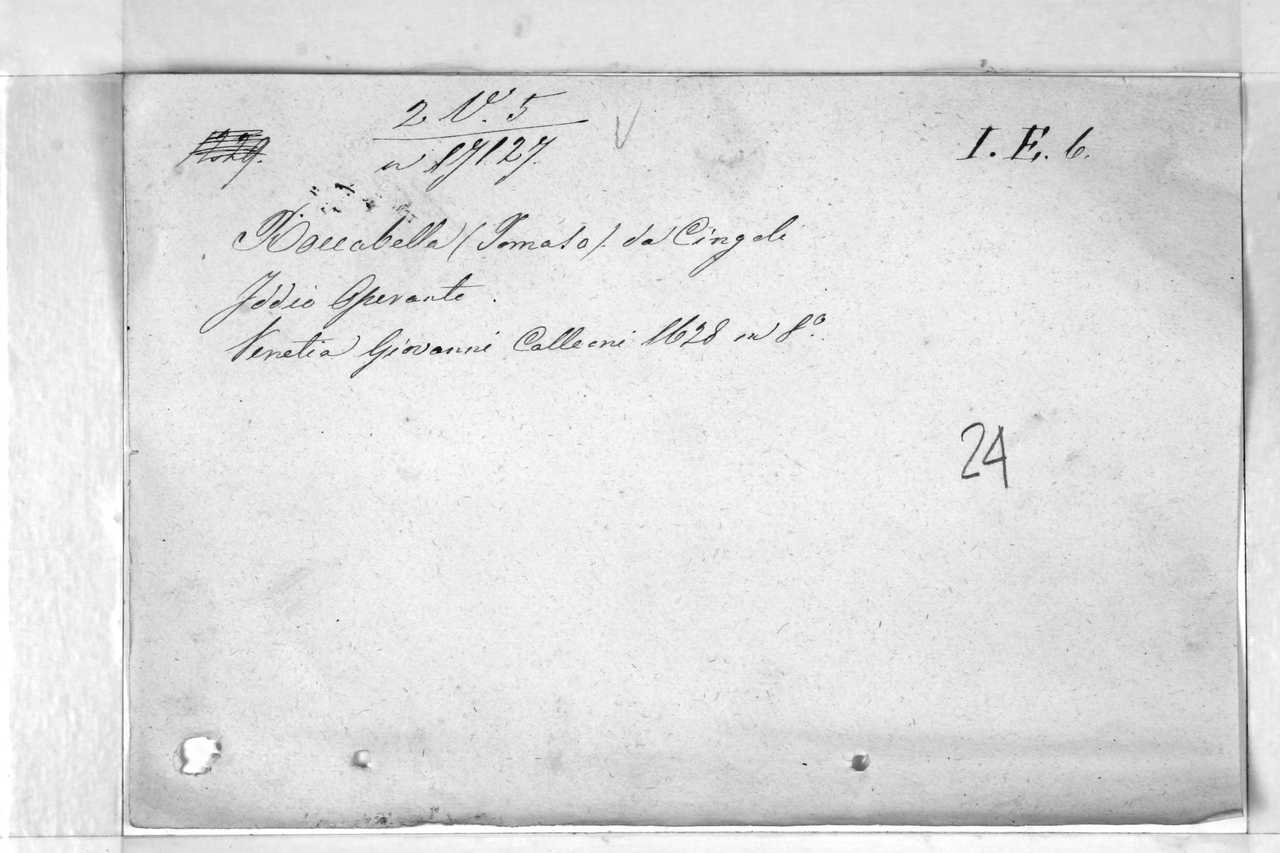 2 V. 5
I. E. 6.
in 17127.
Roccabella (Tomaso) da Cingoli
Iddio Operante.
Venetia Giovanni Calleoni 1628 in 8°.
24